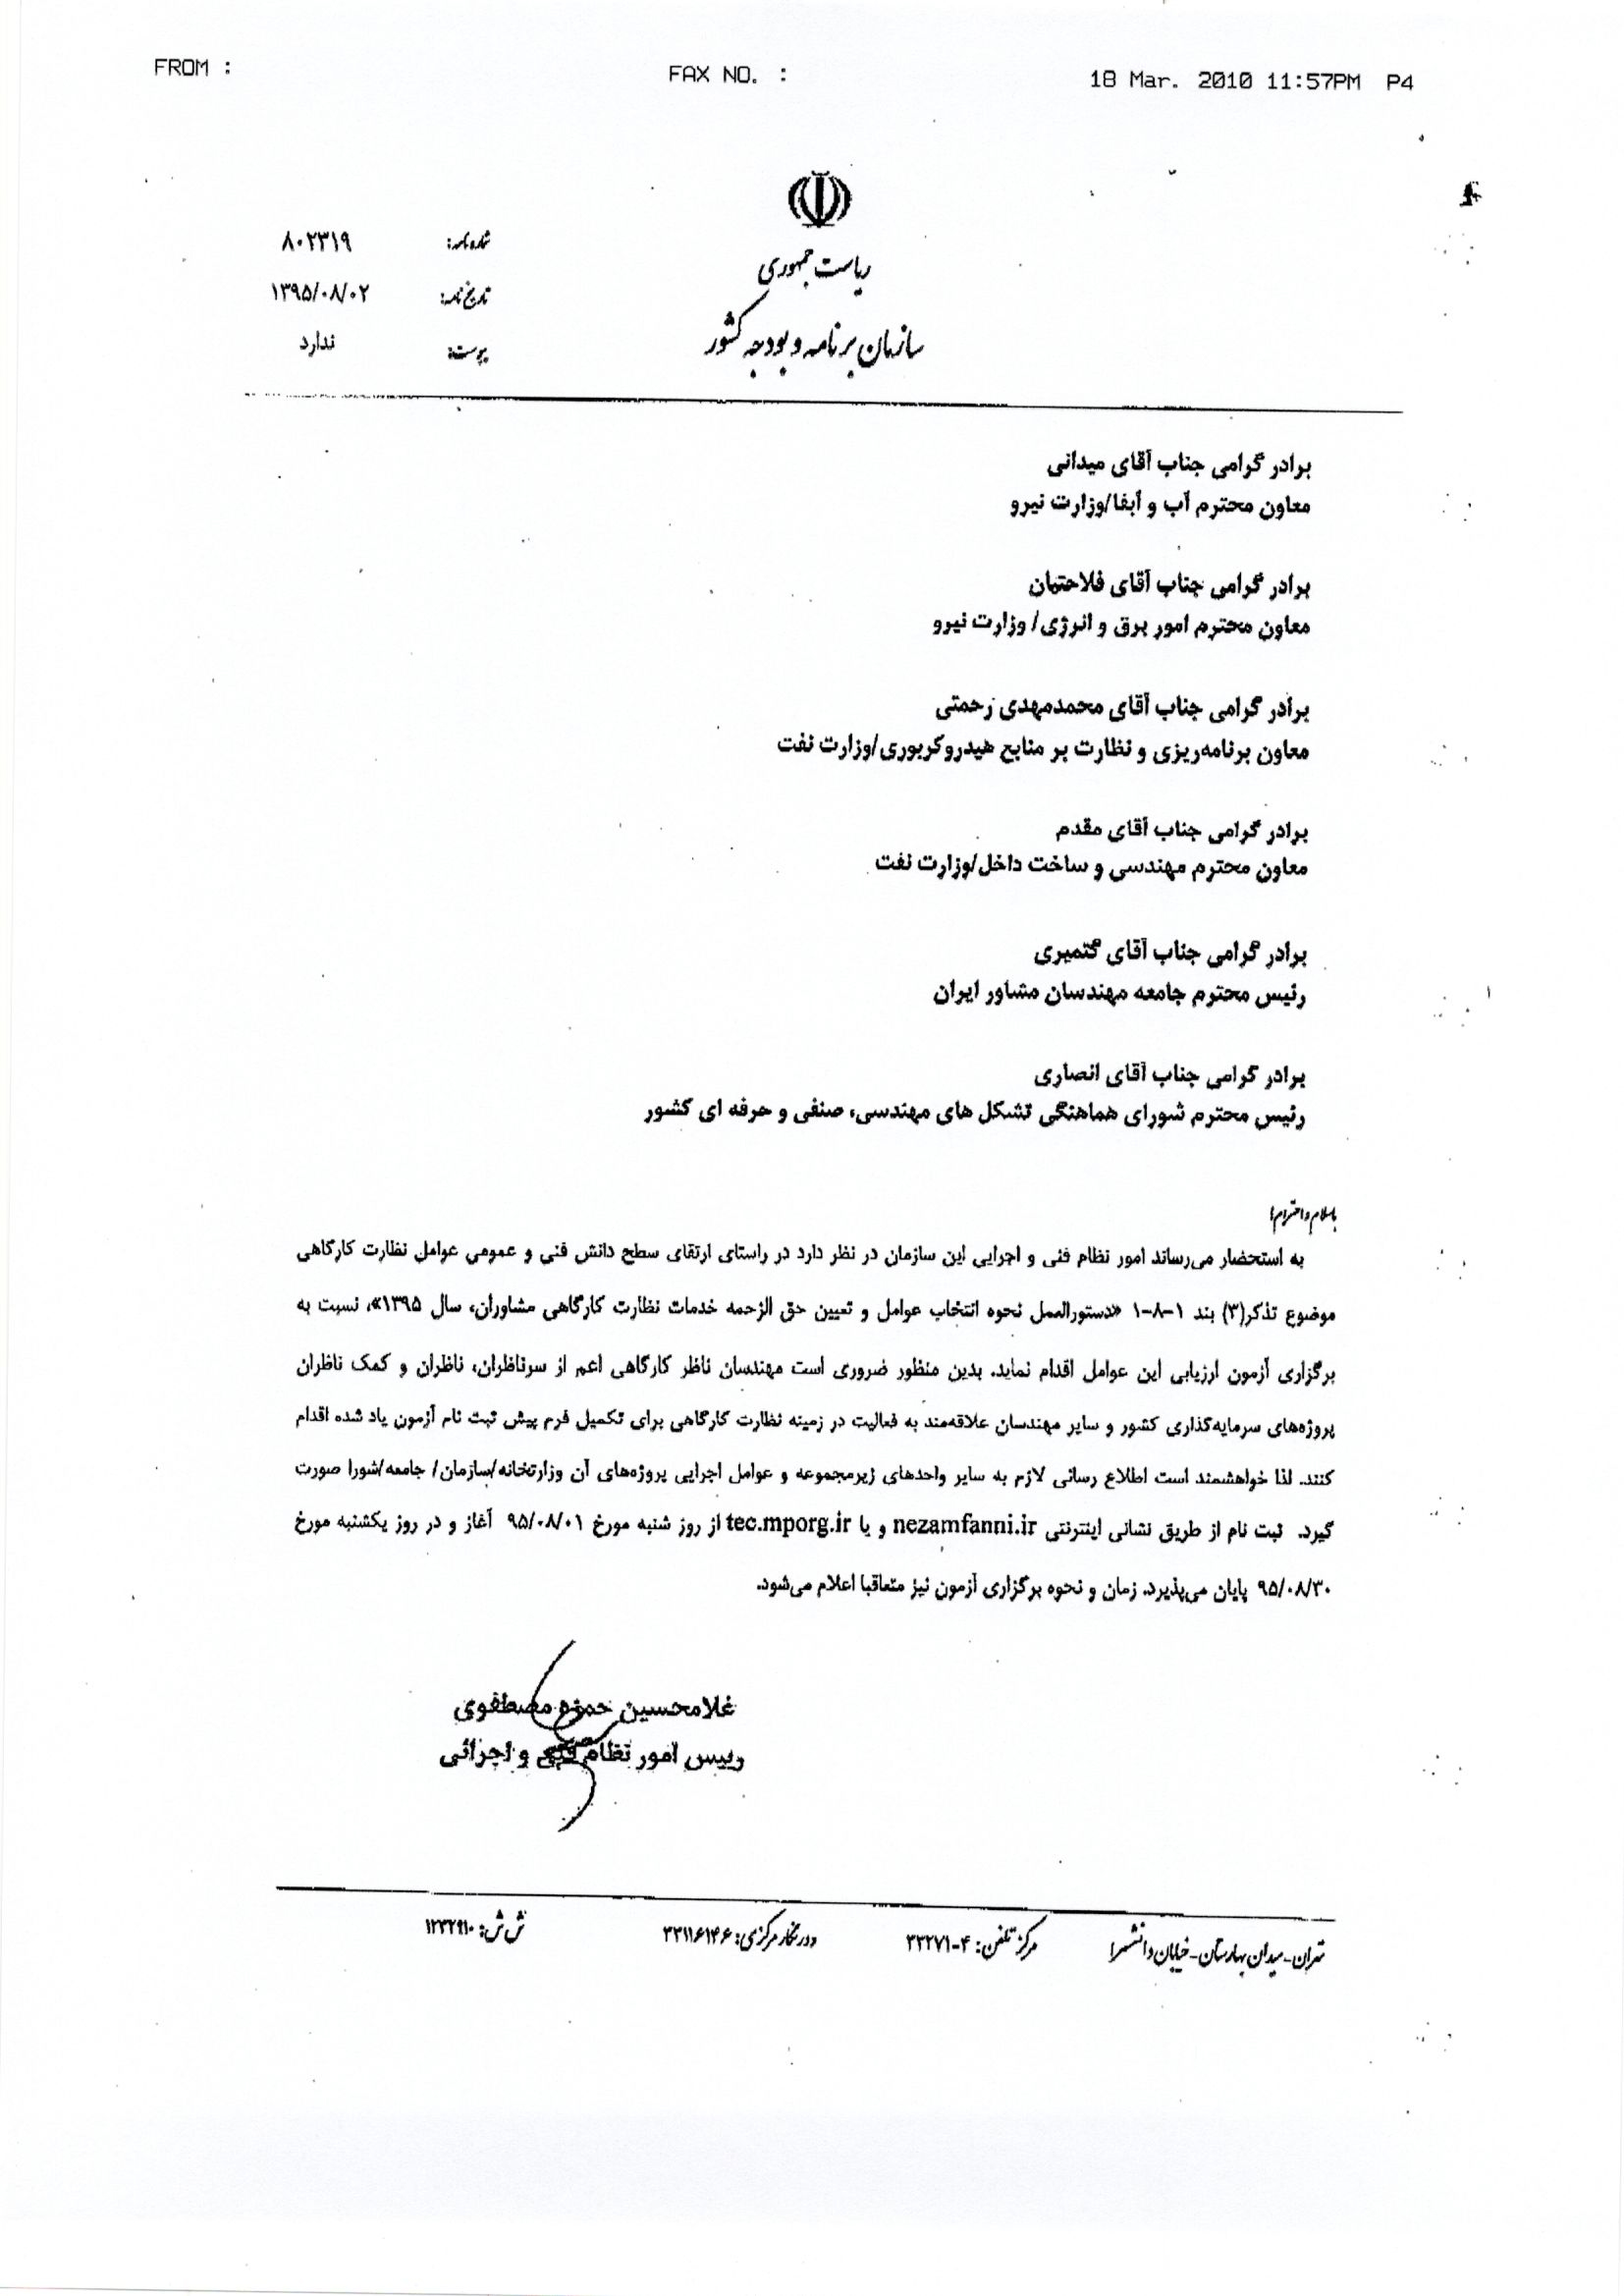 FROM :
FAX NO. :
18 Mar. 2010 11:57PM P4
ریاست جمهوری
سازمان برنامه و بودجه کشور
شماره نامه: ۸۰۲۳۱۹
تاریخ نامه: ۱۳۹۵/۰۸/۰۲
پیوست: ندارد
برادر گرامی جناب آقای میدانی
معاون محترم آب و آبفا/وزارت نیرو
برادر گرامی جناب آقای فلاحتیان
معاون محترم امور برق و انرژی/ وزارت نیرو
برادر گرامی جناب آقای محمدمهدی رحمتی
معاون برنامه‌ریزی و نظارت بر منابع هیدروکربوری/وزارت نفت
برادر گرامی جناب آقای مقدم
معاون محترم مهندسی و ساخت داخل/وزارت نفت
برادر گرامی جناب آقای گتمیری
رئیس محترم جامعه مهندسان مشاور ایران
برادر گرامی جناب آقای انصاری
رئیس محترم شورای هماهنگی تشکل های مهندسی، صنفی و حرفه ای کشور
باسلام و احترام؛
به استحضار می‌رساند امور نظام فنی و اجرایی این سازمان در نظر دارد در راستای ارتقای سطح دانش فنی و عمومی عوامل نظارت کارگاهی
موضوع تذکر(۳) بند ۱-۸-۱ «دستورالعمل نحوه انتخاب عوامل و تعیین حق الزحمه خدمات نظارت کارگاهی مشاوران، سال ۱۳۹۵»، نسبت به
برگزاری آزمون ارزیابی این عوامل اقدام نماید. بدین منظور ضروری است مهندسان ناظر کارگاهی اعم از سرناظران، ناظران و کمک ناظران
پروژه‌های سرمایه‌گذاری کشور و سایر مهندسان علاقه‌مند به فعالیت در زمینه نظارت کارگاهی برای تکمیل فرم پیش ثبت نام آزمون یاد شده اقدام
کنند. لذا خواهشمند است اطلاع رسانی لازم به سایر واحدهای زیرمجموعه و عوامل اجرایی پروژه‌های آن وزارتخانه/سازمان/ جامعه/شورا صورت
گیرد. ثبت نام از طریق نشانی اینترنتی nezamfanni.ir و یا tec.mporg.ir از روز شنبه مورخ ۹۵/۰۸/۰۱ آغاز و در روز یکشنبه مورخ
۹۵/۰۸/۳۰ پایان می‌پذیرد. زمان و نحوه برگزاری آزمون نیز متعاقبا اعلام می‌شود.
غلامحسین حمزه مصطفوی
رییس امور نظام فنی و اجرائی
تهران- میدان بهارستان- خیابان دانشسرا
مرکز تلفن: ۴-۳۳۲۷۱
دورنگار مرکزی: ۳۳۱۱۶۱۴۶
ش ش: ۱۲۳۲۹۱۰